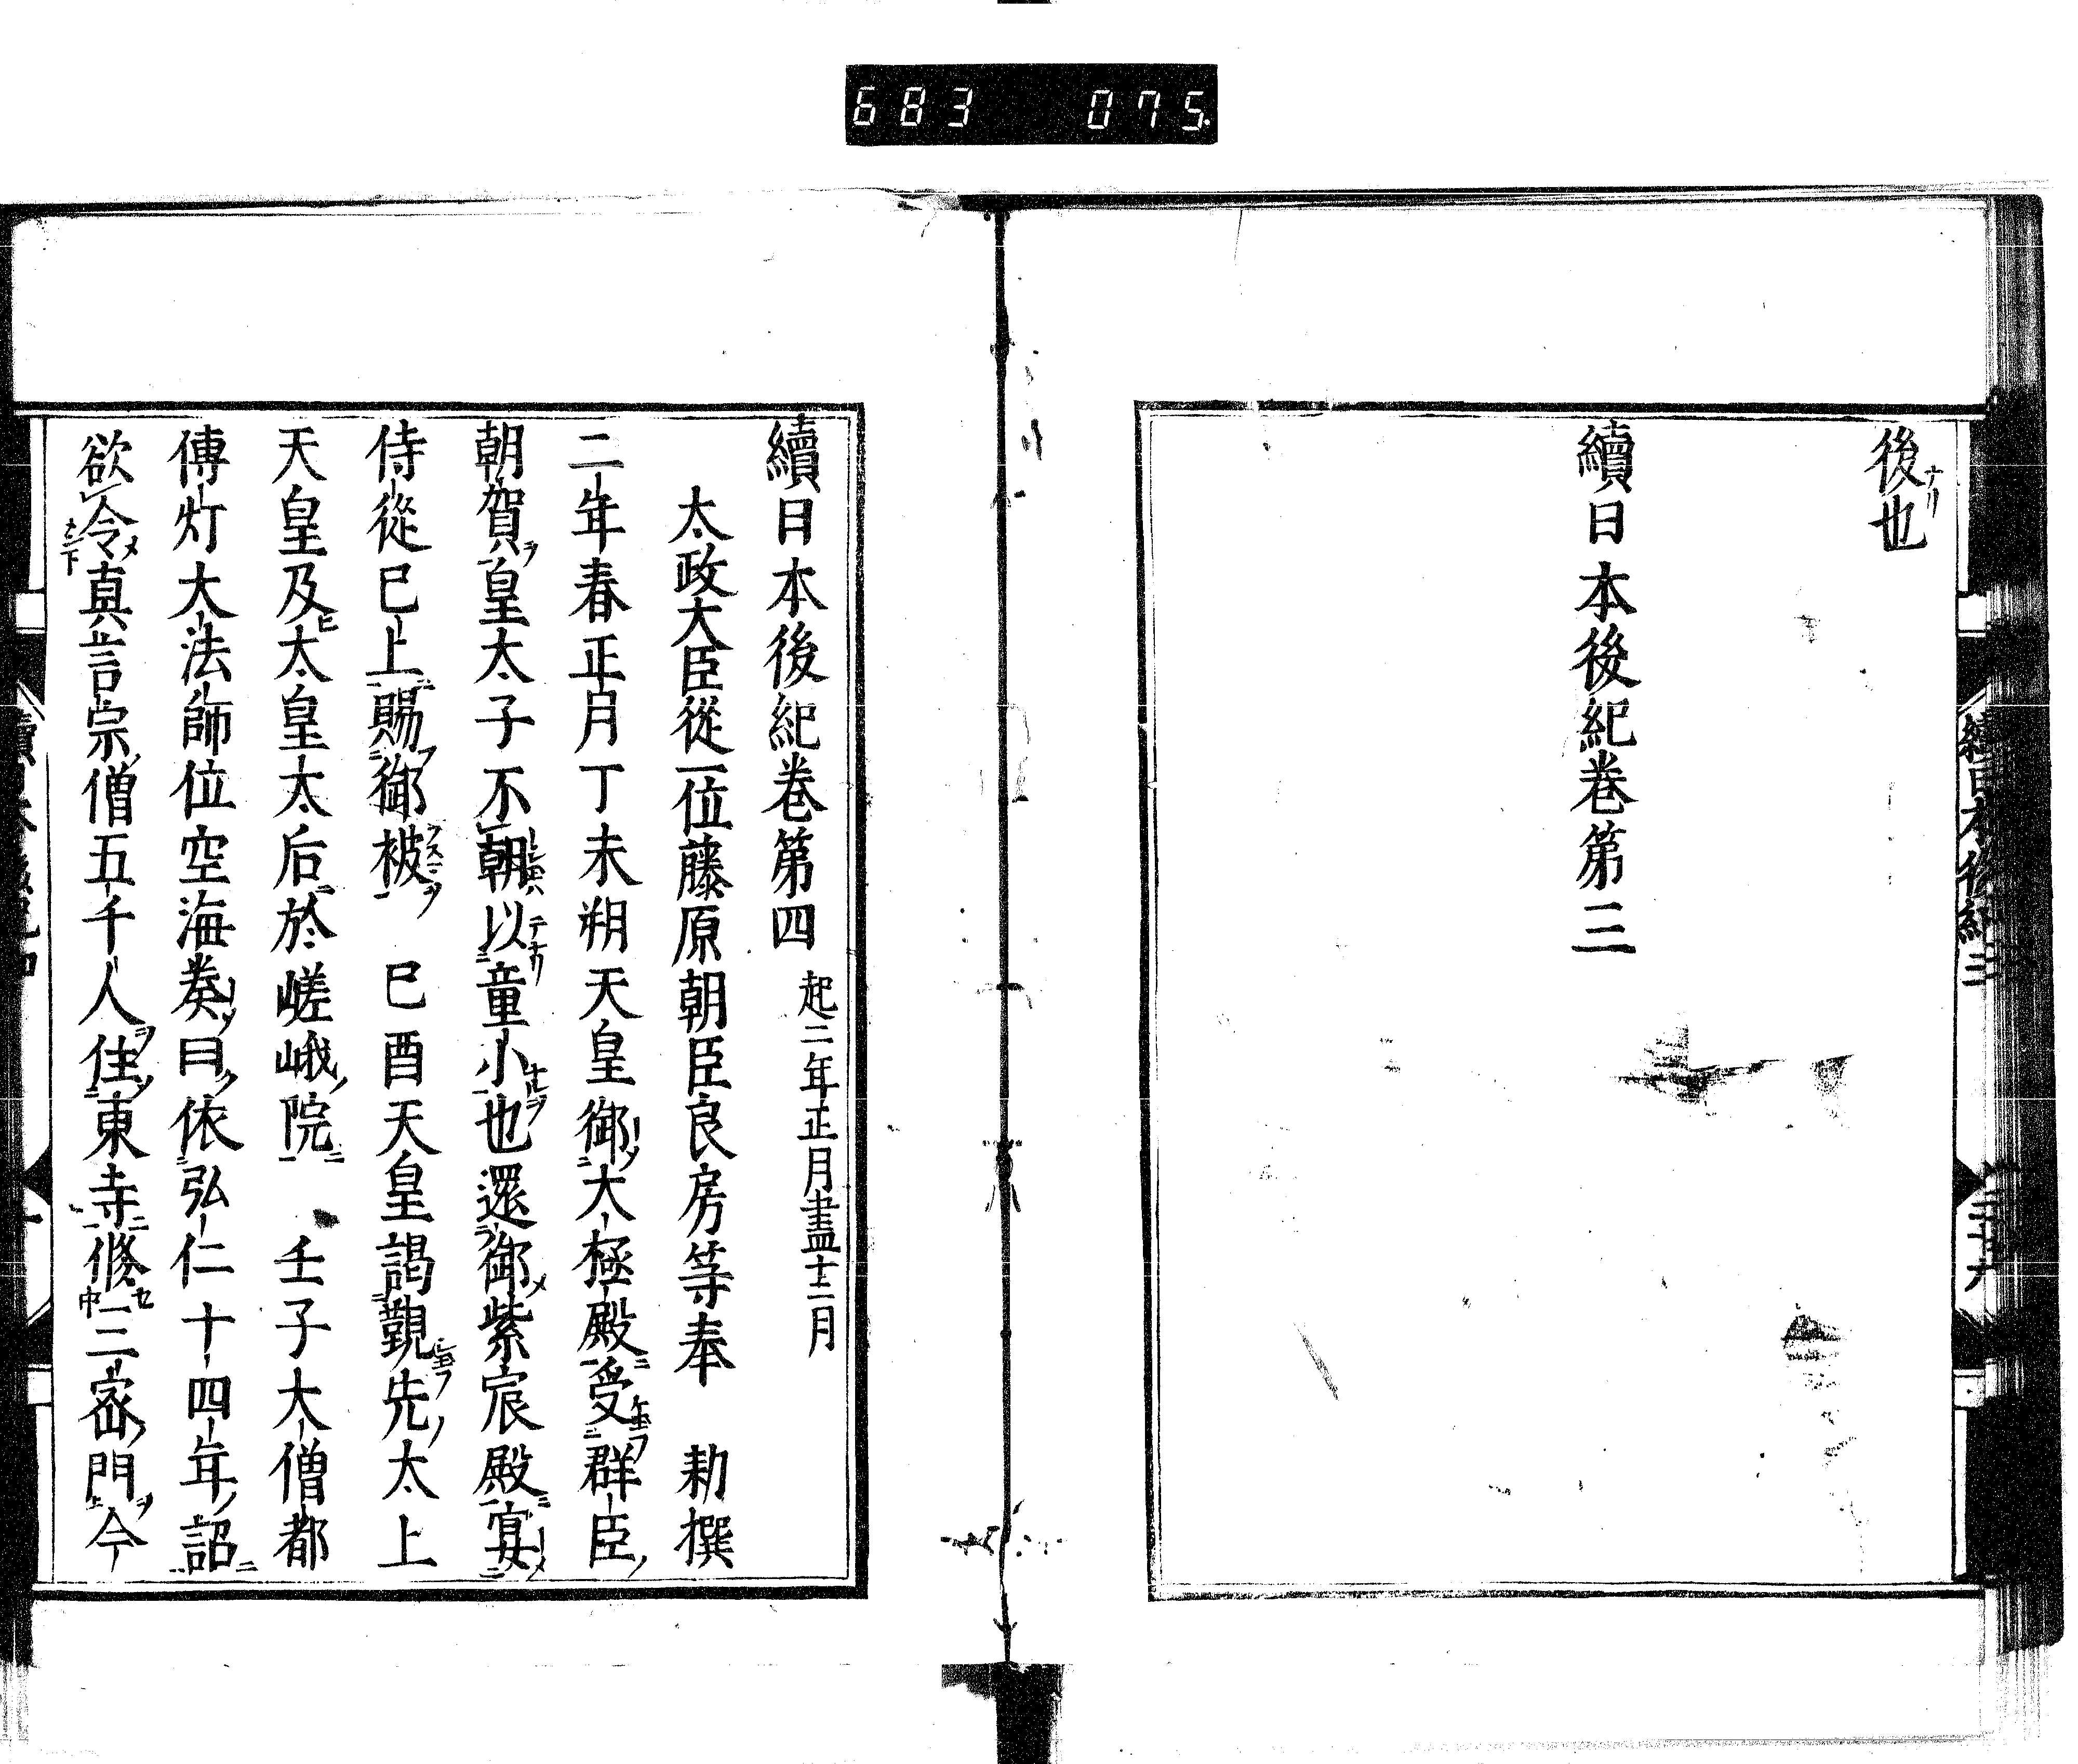 683 075
後也
續日本後紀卷第三
續日本後紀卷第四 起二年正月盡十二月
太政大臣從一位藤原朝臣良房等奉 勅撰
二年春正月丁未朔天皇御大極殿受群臣
朝賀皇太子不朝以童小也還御紫宸殿宴
侍從已上賜御被 已酉天皇謁覲先太上
天皇及太皇太后於嵯峨院 壬子大僧都
傳灯大法師位空海奏曰依弘仁十四年詔
欲令真言宗僧五千人住東寺修三密門今